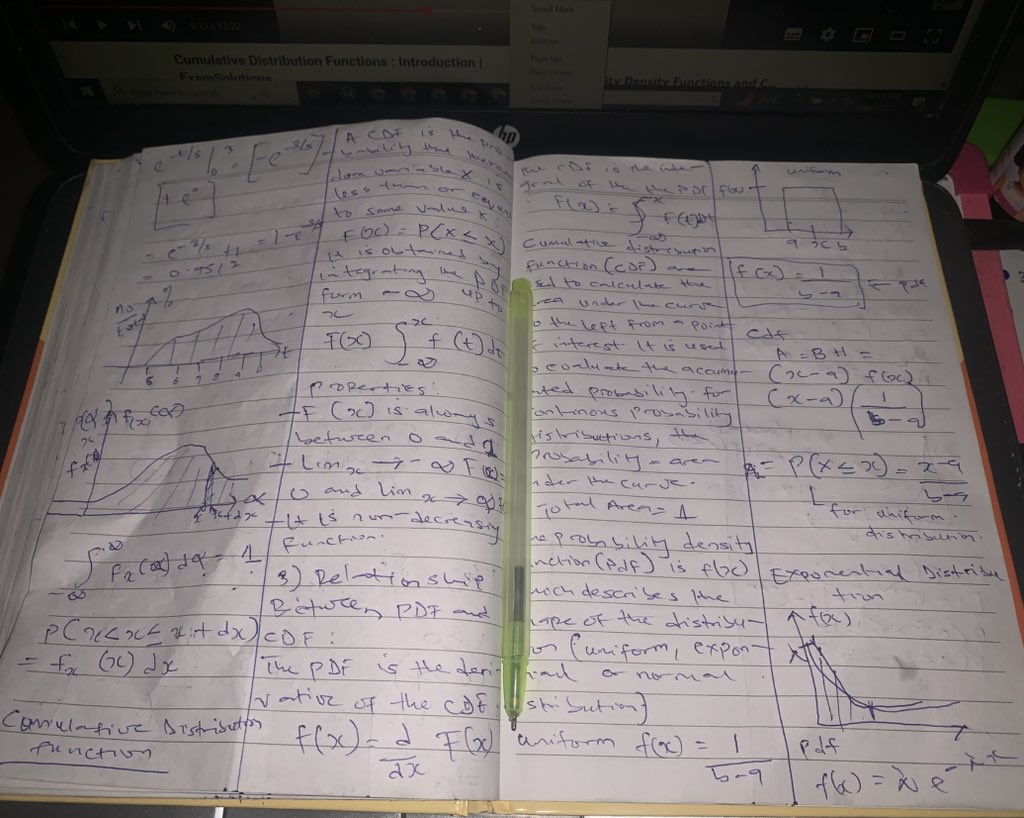 6:11 / 12:22
Scroll Here
Top
Bottom
Page Up
Page Down
Scroll Up
Scroll Down
Cumulative Distribution Functions : Introduction |
ExamSolutions
ity Density Functions and C
Type here to search
hp
e^-t/5 |₀³ = [-e^-3/5]
+ e⁰
= e^-3/5 + 1 = 1-e^-3/5
= 0.4512
%
no
t
5 6 7 8 9 10
x+dx
∫_-∞^∞ fx(α) dα = 1
P(x<x≤x+dx)
= fx (x) dx
Cumulative Distribution
function
A CDF is the pro
bability that the ran
dom variable X is
less than or equal
to some value x.
F(x) = P(X ≤ x)
It is obtained by
integrating the PDF
form -∞ up to
x
F(x) ∫_-∞^x f (t) dt
Properties:
- F (x) is always
between 0 and 1
- Lim x → -∞ F(x)=
0 and Lim x → ∞
- It is non-decreasing
function.
3) Relationship
Between PDF and
CDF:
The PDF is the deri-
vative of the CDF.
f(x) = d/dx F(x)
The CDF is the inte-
gral of the the PDF
F(x) = ∫_-∞^x F(t)dt
Cumulative distribution
function (CDF) are
sed to calculate the
rea under the curve
o the left from a point
f interest It is used
o evaluate the accumu-
ated probability for
ontinous probability
distributions, the
Probability = area
nder the curve.
Total Area = 1
he probability density
unction (pdf) is f(x)
hich describes the
hape of the distribu-
on (uniform, expon-
tial or normal
stribution)
uniform f(x) = 1/b-a
uniform
f(x)
a x b
f(x) = 1/b-a ← pdf
Cdf
A = BH =
(x-a) f(x)
(x-a) (1/b-a)
= P(X ≤ x) = x-a/b-a
for uniform
distribution.
Exponential Distribu
tion
f(x)
λ
x
pdf
f(x) = λ e^-λx